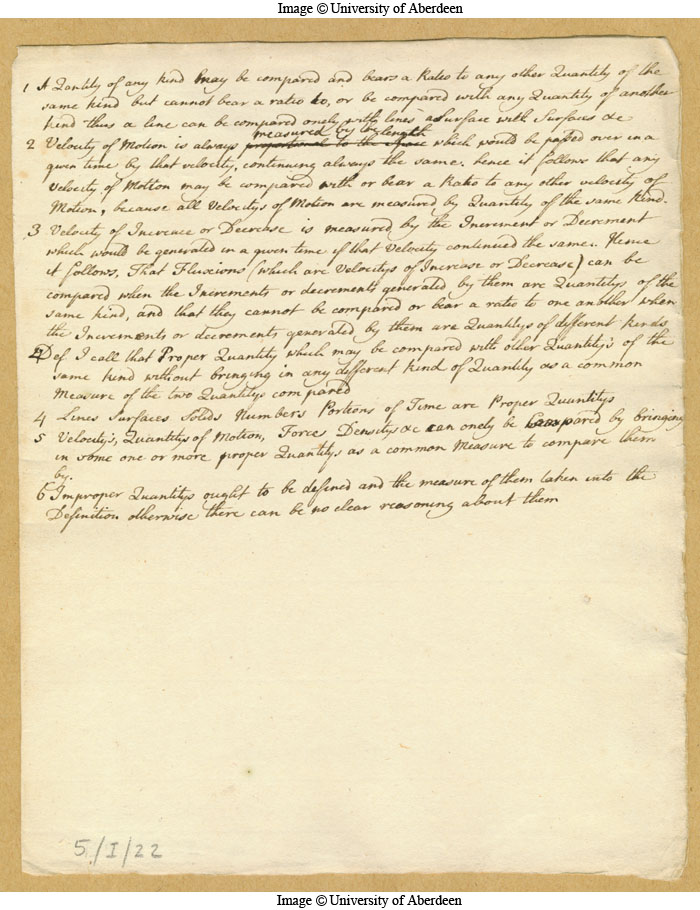 Image © University of Aberdeen
1 A Qantity of any kind may be compared and bears a Ratio to any other Quantity of the
same kind but cannot bear a ratio to, or be compared with any Quantity of another
kind thus a line can be compared onely with lines a surface with Surfaces &c
measured by the length
2 Velocity of Motion is always proportional to the space which would be passed over in a
given time by that velocity, continuing always the same. hence it follows that any
Velocity of Motion may be compared with or bear a Ratio to any other velocity of
Motion, because all Velocitys of Motion are measured by Quantity of the same kind.
3 Velocity of Increace or Decrease is measured by the Increment or Decrement
which would be generated in a given time if that Velocity continued the same. Hence
it follows, That Fluxions (which are Velocitys of Increase or Decrease) can be
compared when the Increments or decrements generated by them are Quantitys of the
same kind, and that they cannot be compared or bear a ratio to one another when
the Increments or decrements generated by them are Quantitys of different kinds
Def. I call that Proper Quantity which may be compared with other Quantitys of the
same kind without bringing in any different kind of Quantity as a common
Measure of the two Quantitys compared
4 Lines Surfaces Solids Numbers Portions of Time are Proper Quantitys
5 Velocitys, Quantitys of Motion, Forces Densitys &c can onely be compared by bringing
in some one or more proper Quantitys as a common Measure to compare them
by.
6 Improper Quantitys ought to be defined and the measure of them taken into the
Definition otherwise there can be no clear reasoning about them
5/I/22
Image © University of Aberdeen